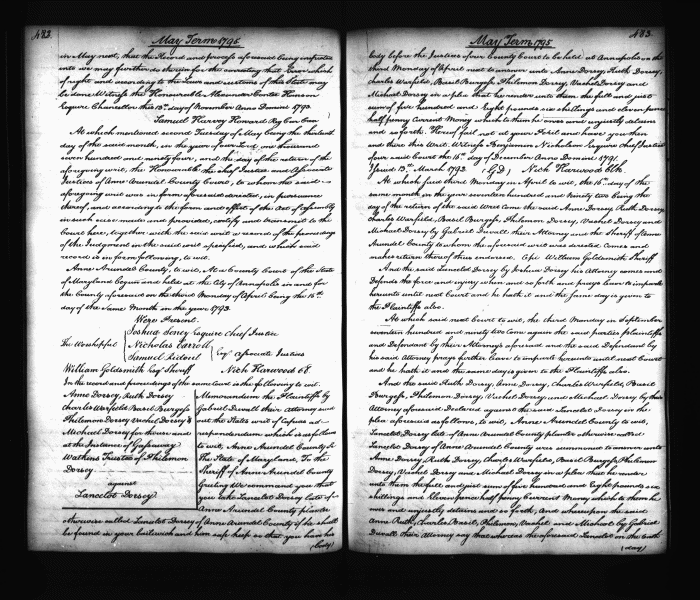 483.
May Term 1795
in May next, that the Record and process aforesaid being inspected
we may further do therein for the correcting that Error which
of right and according to the Laws and customs of this State may
be done Witness the Honourable Alexander Contee Hanson
Esquire Chancellor this 13th day of November Anno Domini 1793
Samuel Harvey Howard Reg Cur Can
At which mentioned second Tuesday of May being the thirteenth
day of the said month, in the year of our Lord, one thousand
seven hundred and ninety four, and the day of the return of the
aforegoing writ, the Honorable the chief Justice and Associate
Justices of Anne Arundel County Court, to whom the said
aforegoing writ was in form aforesaid directed, in pursuance
thereof, and according to the form and effect of the Act of assembly
in such case made and provided, certify and transmit to the
Court here, together with the said writ a record of the proceedings
of the Judgment in the said writ specified, and which said
record is in form following, to wit.
Anne Arundel County, to wit, At a County Court of the State
of Maryland begun and held at the City of Annapolis in and for
the County aforesaid on the third Monday of April being the 15th
day of the same Month in the year 1793.
Were Present.
The Worshipful
Joshua Seney Esquire Chief Justice
Nicholas Carroll
Samuel Ridout
Esqrs Associate Justices
William Goldsmith Esqr Sheriff
Nich Harwood Clk
In the record and proceedings of the same Court is the following to wit.
Anne Dorsey, Ruth Dorsey
Charles Warfield, Basil Burgess
Philemon Dorsey Vachel Dorsey &
Michael Dorsey for the use and
at the Instance of Gassaway
Watkins Trustee of Philemon
Dorsey
against
Lancelot Dorsey
Memorandum the Plaintiffs by
Gabriel Duvall their Attorney sued
out the States writ of Capias ad
respondendum which is as follows
to wit, Anne Arundel County Sc
The State of Maryland, To the
Sheriff of Anne Arundel County
Greeting We command you that
you take Lancelot Dorsey late of
Anne Arundel County planter
otherwise called Lancelot Dorsey of Anne Arundel County if he shall
be found in your bailiwick and him safe keep so that you have his
(body)
483
May Term 1795
body before the Justices of our County Court to be held at Annapolis on the
third Monday of April next to answer unto Anne Dorsey, Ruth Dorsey,
Charles Warfield, Basil Burgess, Philemon Dorsey, Vachel Dorsey and
Michael Dorsey in a plea that he render unto them the full and just
sum of five hundred and Eight pounds six shillings and eleven pence
half penny current Money which to them he owes and unjustly detains
and so forth. Hereof fail not at your Peril and have you then
and there this Writ. Witness Benjamin Nicholson Esquire chief Justice
of our said Court the 16th day of December Anno Domini 1791.
Issued 13th March 1792. (GD) Nich Harwood Clk.
At which said third Monday in April to wit, the 16th day of the
same month in the year seventeen hundred and Ninety two being the
day of the return of the said Writ Come the said Anne Dorsey Ruth Dorsey
Charles Warfield, Basil Burgess, Philemon Dorsey, Vachel Dorsey and
Michael Dorsey by Gabriel Duvall their Attorney and the Sheriff of Anne
Arundel County to whom the aforesaid writ was directed Comes and
makes return thereof thus endorsed. Cepi William Goldsmith Sheriff
And the said Lancelot Dorsey by Joshua Dorsey his Attorney comes and
Defends the force and injury when and so forth and prays leave to imparle
hereunto until next Court and he hath it and the same day is given to
the Plaintiffs also.
At which said next Court to wit, the third Monday in September
seventeen hundred and ninety two Come again the said parties plaintiffs
and Defendant by their Attorneys aforesaid and the said Defendant by
his said Attorney prays further leave to imparle hereunto until next Court
and he hath it and the same day is given to the Plaintiffs also.
And the said Ruth Dorsey, Anne Dorsey, Charles Warfield, Basil
Burgess, Philemon Dorsey, Vachel Dorsey and Michael Dorsey by their
Attorney aforesaid Declared against the said Lancelot Dorsey in the
plea aforesaid as follows, to wit, Anne Arundel County to wit,
Lancelot Dorsey late of Anne Arundel County planter otherwise called
Lancelot Dorsey of Anne Arundel County was summoned to answer unto
Anne Dorsey Ruth Dorsey, Charles Warfield, Basil Burgess Philemon
Dorsey, Vachel Dorsey and Michael Dorsey in a plea that he render
unto them the full and just sum of five hundred and Eight pounds six
shillings and Eleven pence half penny Current Money which to them he
owes and unjustly detains and so forth, And whereupon the said
Anne Ruth, Charles, Basil, Philemon, Vachel and Michael by Gabriel
Duvall their Attorney say that whereas the aforesaid Lancelot on the tenth
(day)